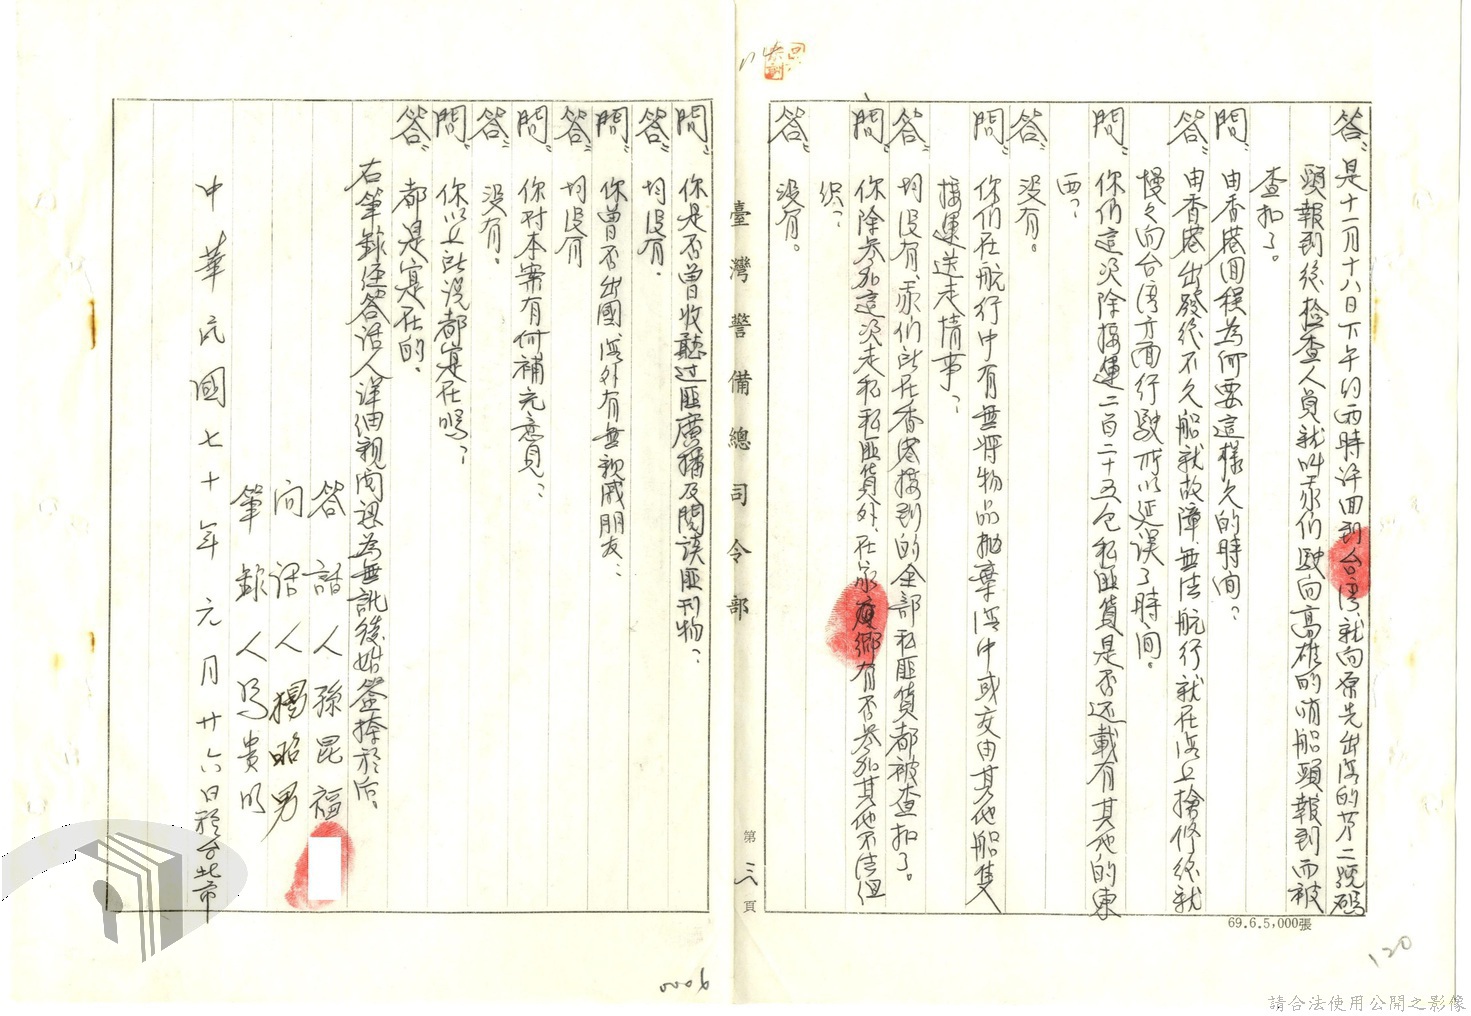 答：是十一月十八日下午約兩時許回到台灣，就向原先出港的第二號碼
頭報到後檢查人員就叫我們駛向高雄的哨船頭報到而被
查扣了。
問：由香港回程為何要這樣久的時間？
答：由香港出發後不久船就故障，無法航行就在海上搶修後就
慢慢向台灣方面行駛所以延誤了時間。
問：你們這次除接運二百二十五包私匪貨是否還載有其他的東
西？
答：沒有。
問：你們在航行中有無將物品拋棄海中或交由其他船隻
接運送走情事？
答：均沒有，我們所在香港接到的全部私匪貨都被查扣了。
問：你除參加這次走私私匪貨外，在家鄉有否參加其他不法組
织？
答：沒有。
臺灣警備總司令部
第三頁
問：你是否曾收聽过匪廣播及閱讀匪刊物？
答：均沒有。
問：你曾否出國海外有無親戚朋友？
答：均沒有
問：你对本案有何補充意見？
答：沒有。
問：你以上所说都寔在嗎？
答：都是寔在的。
右筆錄經答話人详细親閱認為無訛後始簽捺於后。
答話人孫昆福
問話人楊昭男
筆錄人馮貴明
中華民國七十年元月廿六日於台北市
69.6.5,000張
120
0006
請合法使用公開之影像